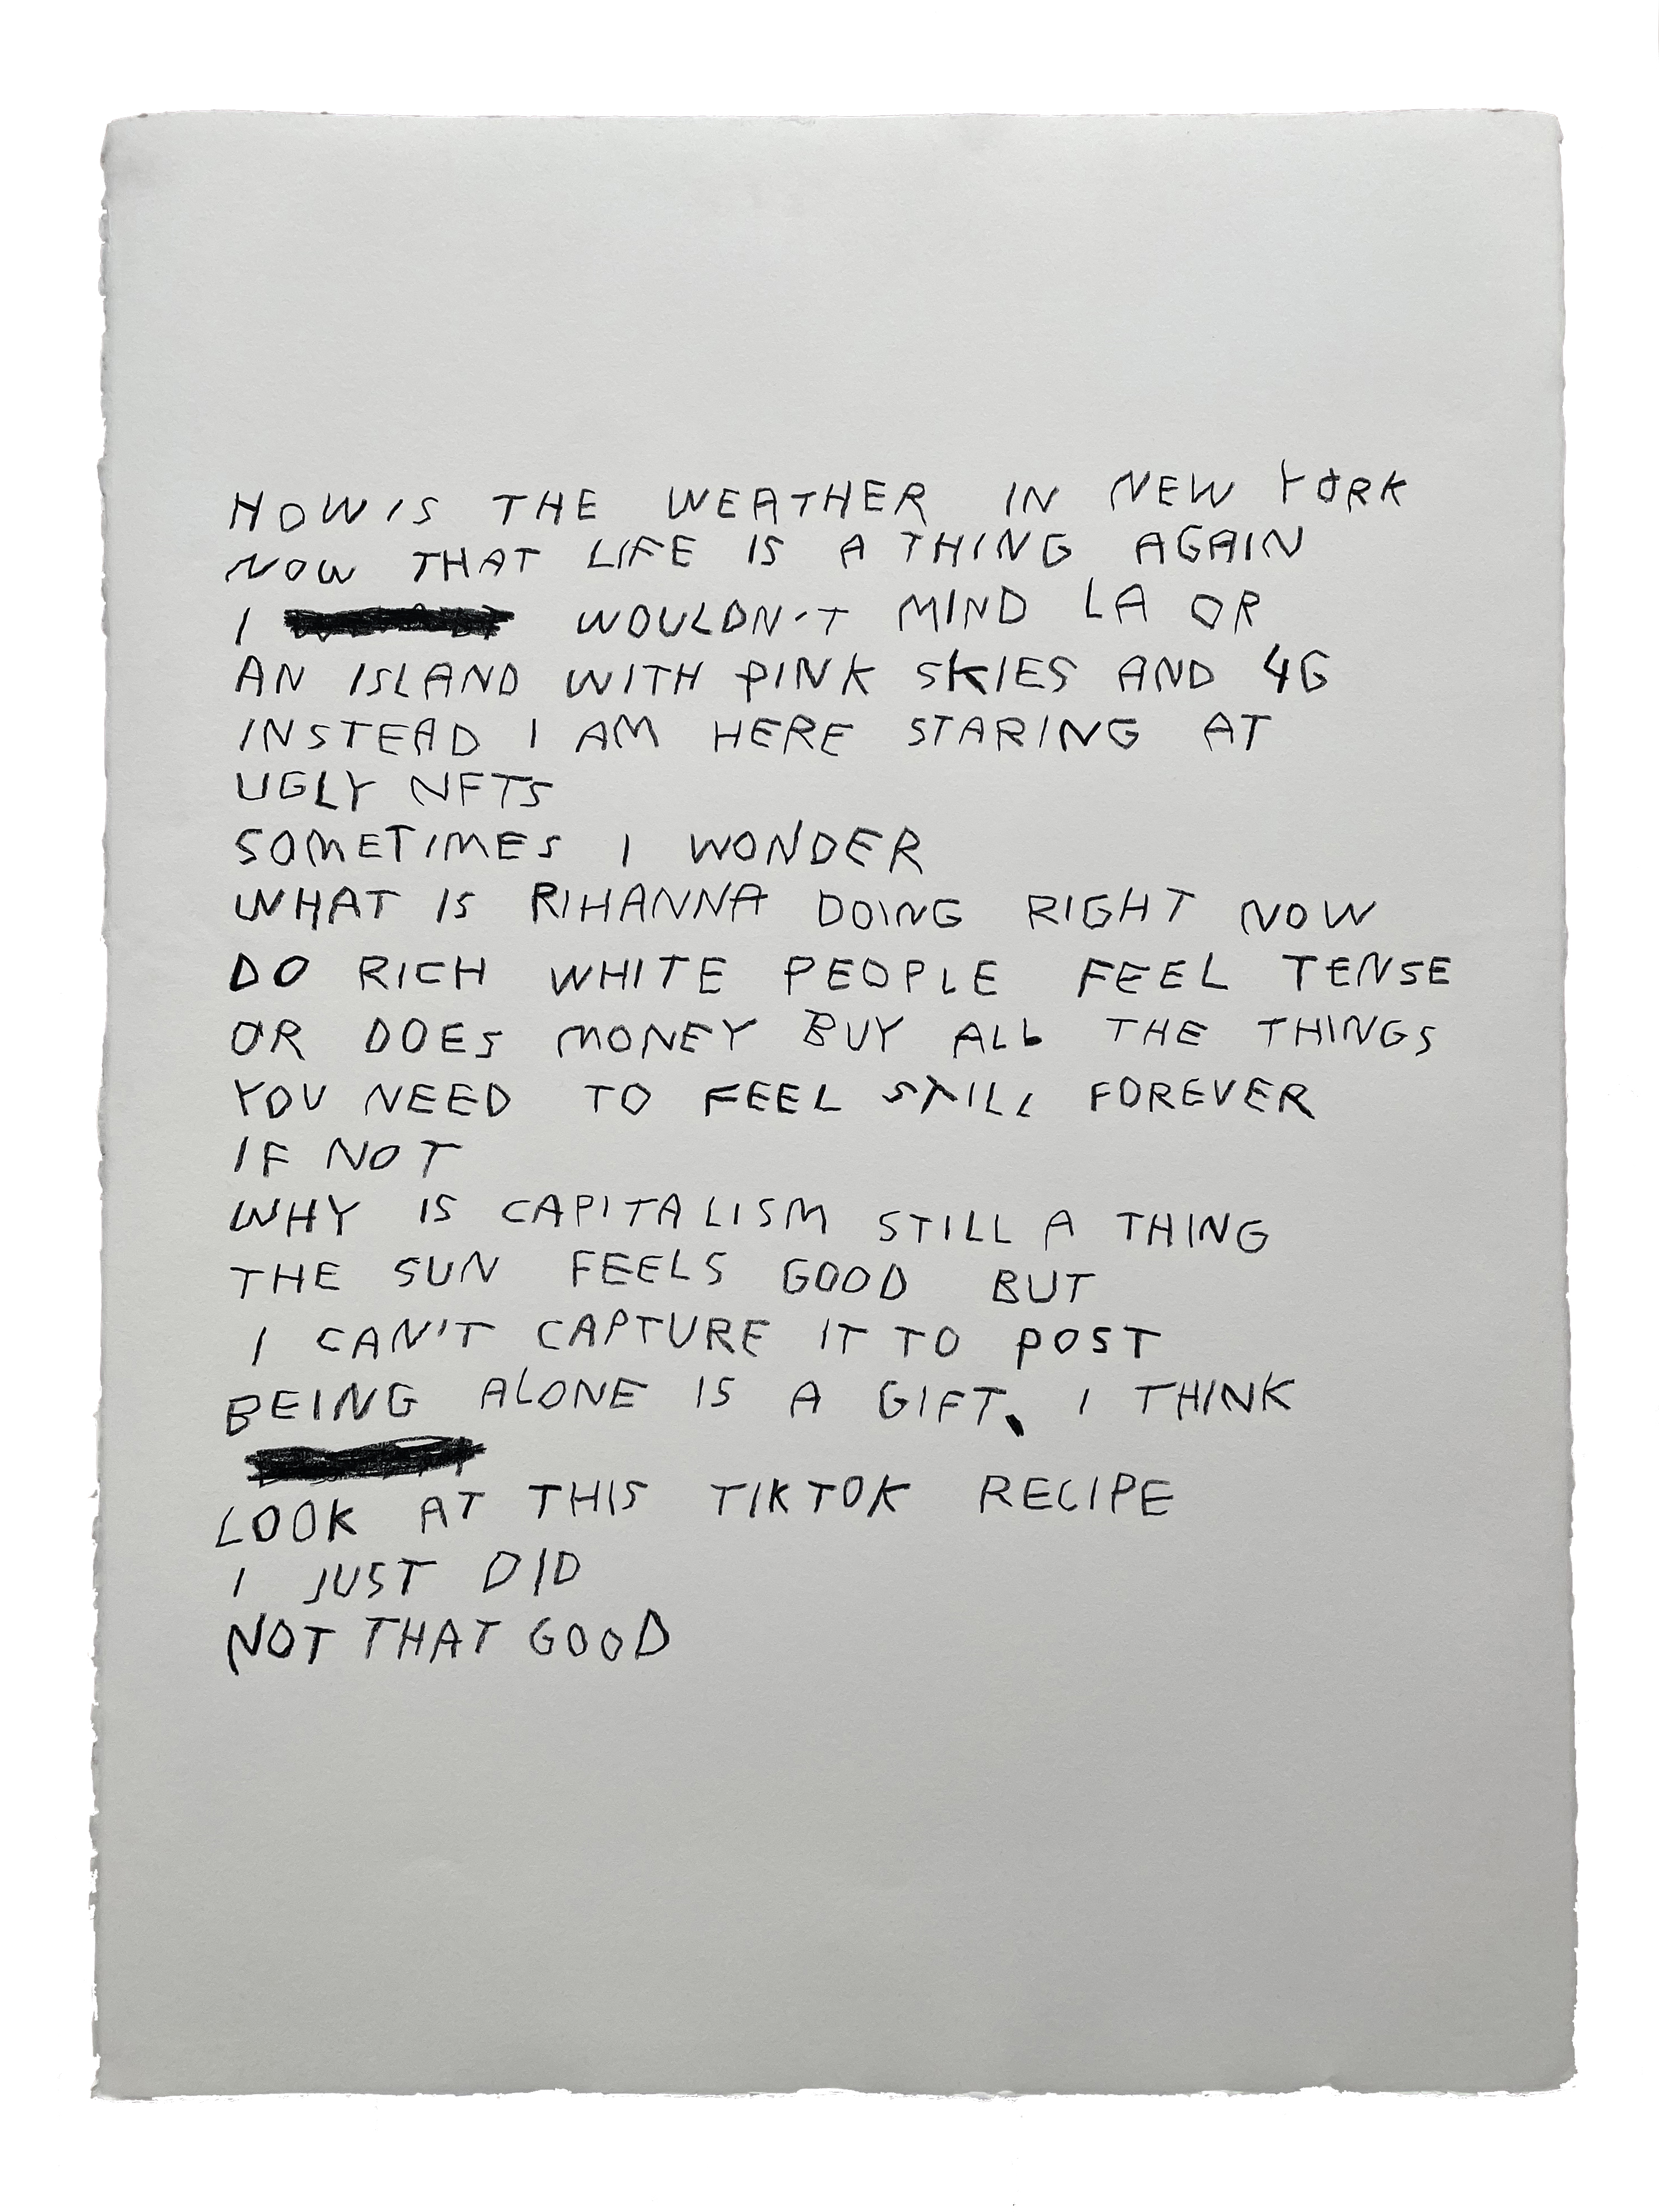 HOW IS THE WEATHER IN NEW YORK
NOW THAT LIFE IS A THING AGAIN
I WOULDN'T MIND LA OR
AN ISLAND WITH PINK SKIES AND 4G
INSTEAD I AM HERE STARING AT
UGLY NFTS
SOMETIMES I WONDER
WHAT IS RIHANNA DOING RIGHT NOW
DO RICH WHITE PEOPLE FEEL TENSE
OR DOES MONEY BUY ALL THE THINGS
YOU NEED TO FEEL STILL FOREVER
IF NOT
WHY IS CAPITALISM STILL A THING
THE SUN FEELS GOOD BUT
I CAN'T CAPTURE IT TO POST
BEING ALONE IS A GIFT, I THINK
LOOK AT THIS TIKTOK RECIPE
I JUST DID
NOT THAT GOOD